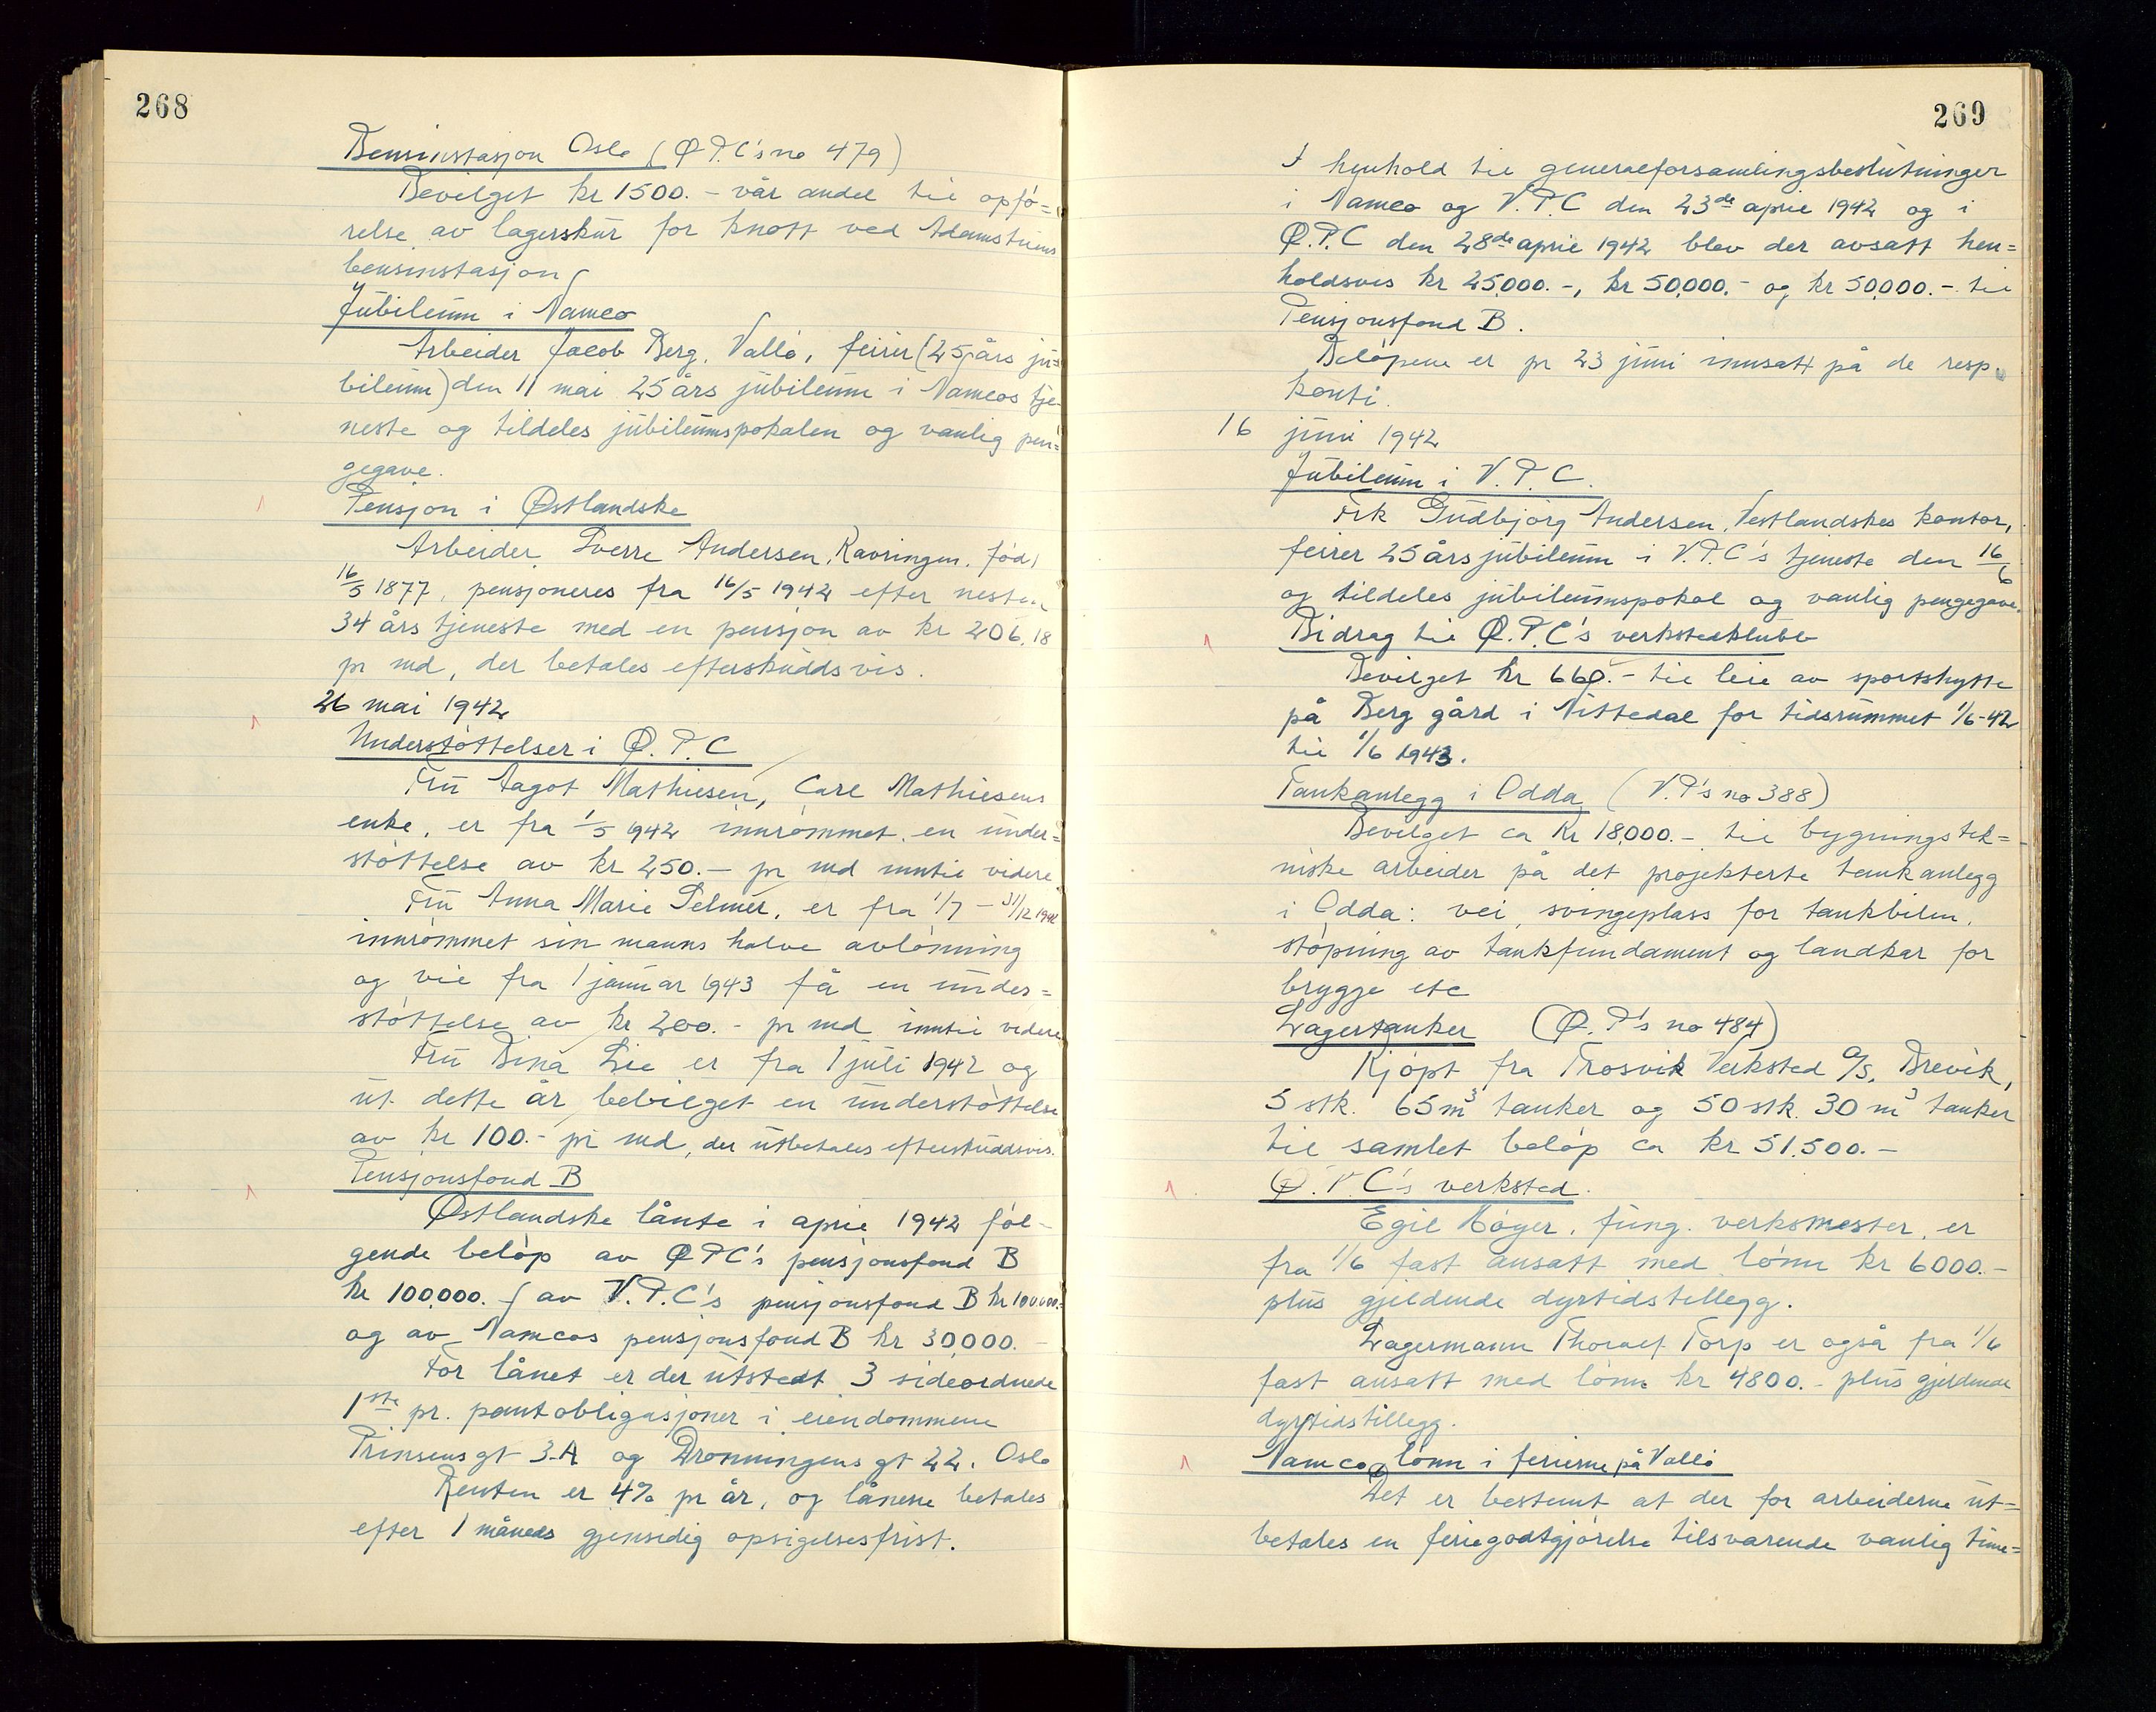 268
Bensinstasjon Oslo (Ø P.C's no 479)
Bevilget kr 1500.- vår andel til opfø=
relse av lagerskur for knott ved Adamstuens
bensinstasjon
Jubileum i Namco
Arbeider Jacob Berg, Vallø, feirer (25 års ju=
bileum) den 11 mai 25 års jubileum i Namcos tje=
neste og tildeles jubileumspokalen og vanlig pen=
gegave.
Pensjon i Østlandske
Arbeider Sverre Andersen, Ravringen, født
16/5 1877, pensjoneres fra 16/5 1942 efter nesten
34 års tjeneste med en pensjon av kr 206,18
pr md, der betales efterskuddsvis.
26 mai 1942
Understøttelser i Ø.P.C
Fru Aagot Mathiesen, Carl Mathiesens
enke, er fra 1/5 1942 innrømmet en under=
støttelse av kr 250.- pr md inntil videre
Fru Anna Marie Selmer, er fra 1/7 - 31/12 1942
innrømmet sin manns halve avlønning
og vil fra 1 januar 1943 få en under=
støttelse av kr 200.- pr md inntil videre
Fru Dina Lie er fra 1 juli 1942 og
ut dette år bebilget en understøttelse
av kr 100.- pr md, der utbetales efterskuddsvis.
Pensjonsfond B
Østlandske lånte i april 1942 føl-
gende beløp av ØPC's pensjonsfond B
kr 100.000.- av V.P.C's pensjonsfond B kr 100.000.-
og av Namcos pensjonsfond B kr 30,000.-
For lånet er der utstedt 3 sideordnede
1ste pr. pantobligasjoner i eiendommene
Prinsensgt 3-A og Dronningensgt 22. Oslo
Renten er 4% pr år, og lånene betales
efter 1 måneds gjensidig opsigelsesfrist.
269
I henhold til generalforsamlingsbeslutninger
i Namco og V.P.C den 23de april 1942 og i
Ø.P.C den 28de april 1942 blev der avsatt hen=
holdsvis kr 25,000.-, kr 50,000.- og kr 50,000.- til
Pensjonsfond B.
Beløpene er pr 23 juni innsatt på de resp.
konti.
16 juni 1942
Jubileum i V.P.C.
Frk Gudbjørg Andersen, Vestlandskes kontor,
feirer 25 års jubileum i V.P.C's tjeneste den 16/6
og tildeles jubileumspokal og vanlig pengegave.
Bidrag til Ø.P.C's verkstedklubb
Bevilget kr 660.- til leie av sportshytte
på Berg gård i Nittedal for tidsrummet 1/6-42
til 1/6 1943.
Tankanlegg i Odda (V.P's no 388)
Bevilget ca kr 18,000.- til bygningstek=
niske arbeider på det projekterte tankanlegg
i Odda: vei, svingeplass for tankbilen,
støpning av tankfundament og landkar for
brygge etc
Lagertanker (Ø.P's no 484)
Kjøpt fra Trosvik Verksted A/S, Brevik,
5 stk. 65 m³ tanker og 50 stk. 30 m³ tanker
til samlet beløp ca kr 51.500.-
Ø.P.C's verksted.
Egil Høyer, fung. verksmester, er
fra 1/6 fast ansatt med lønn kr 6000.-
plus gjeldende dyrtidstillegg.
Lagermann Thoralf Torp er også fra 1/6
fast ansatt med lønn kr 4800.- plus gjeldende
dyrtidstillegg.
Namco, lønn i feriene på Vallø
Det er bestemt at der for arbeiderne ut=
betales en feriegodtgjørelse tilsvarende vanlig time=